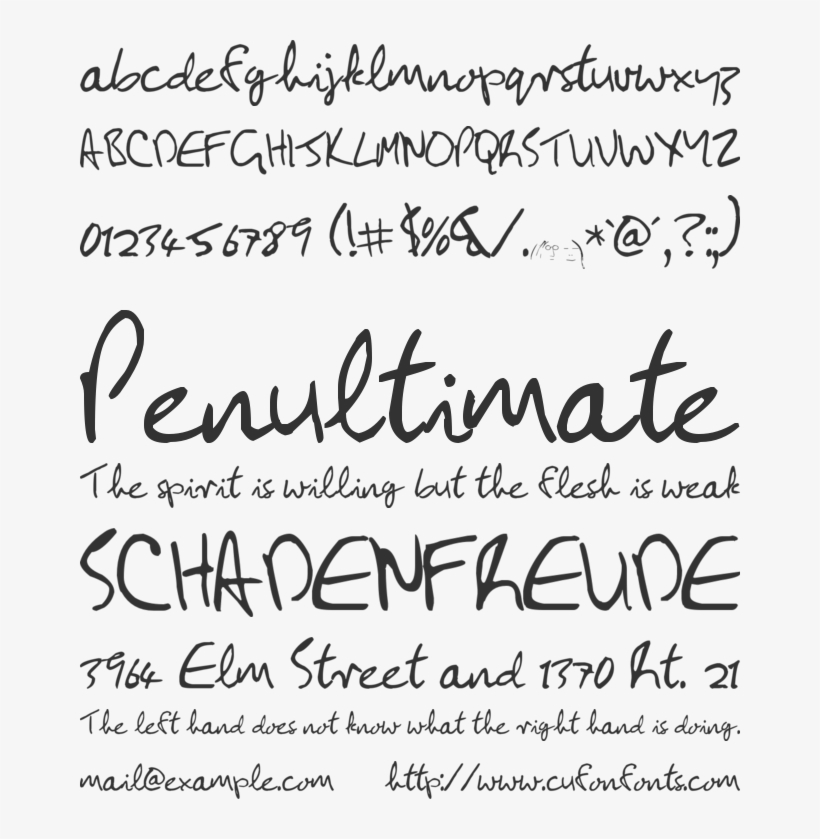 abcdefghijklmnopqrstuvwxyz
ABCDEFGHIJKLMNOPQRSTUVWXYZ
0123456789 (!#$%&/.*`@´,?:;)
Penultimate
The spirit is willing but the flesh is weak
SCHADENFREUDE
3964 Elm Street and 1370 Rt. 21
The left hand does not know what the right hand is doing.
mail@example.com http://www.cufonfonts.com